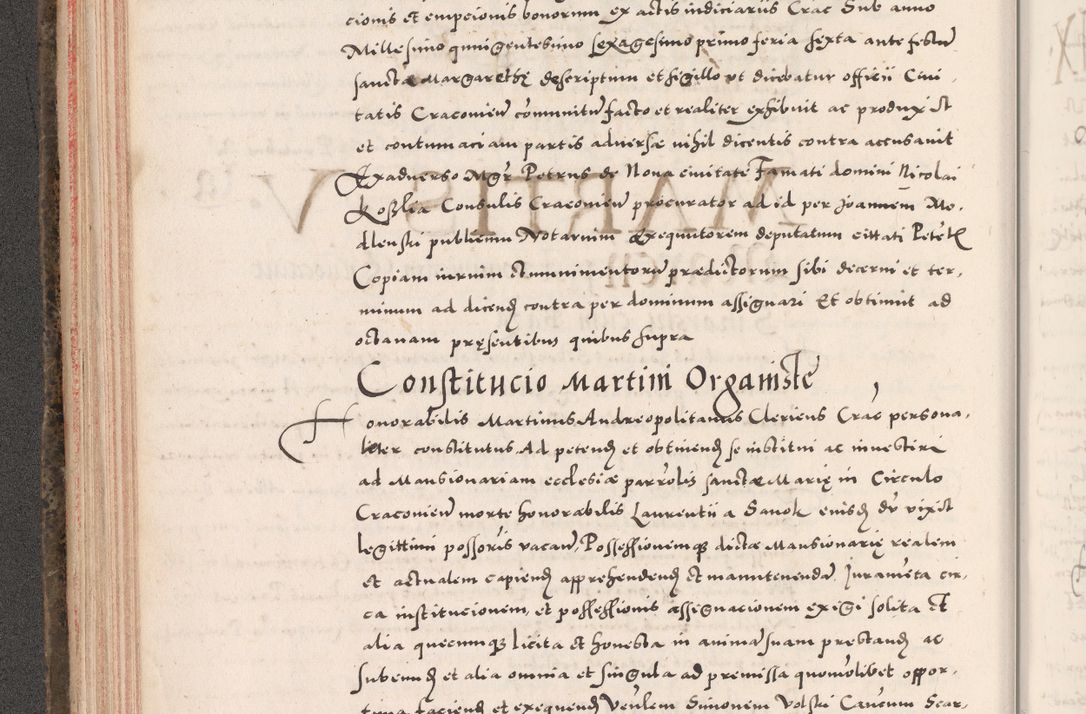 cionis et empcionis bonorum ex actis iudiciariis Crac Sub anno
Millesimo quingentesimo sexagesimo primo feria sexta ante festu
sanctæ Margarethę descriptum et sigillo ut dicebatur officii Civi,
tatis Cracovien communitu facto et realiter exhibuit ac produxit
et contumaciam partis adversæ nihil dicentis contra accusavit
Exadverso Mgr Petrus de Nova civitate Famati domini Nicolai
Consulis Cracovien procurator ad id per Joannem Me,
dlenski publicum Notarium Exequutorem deputatum cittati
Copiam iurium et munimentoru prædictorum sibi decerni et ter,
minum ad dicend contra per dominum assignari Et obtinuit ad
octavam pręsentibus quibus supra
Constitucio Martini Organiste
Honorabilis Martinus Andreopolitanus Clericus Crac persona,
liter constitutus Ad petend et obtinend se institui ac investiri
ad Mansionariam ecclesiæ parrolis sanctæ Marię in Circulo
Cracovien morte honorabilis Laurentii a Sanok eiusd du vixit
legittimi possoris vacan, Possessionemq dictæ Mansionarię realem
et actualem capiend apprehendend et manutenenda Jurameta cir,
ca institucionem, et possessionis assignacionem exigi solita et
alia quecumq licita et honesta in anima suam prestand ac
subeund et alia omnia et singula ad premissa quomolibet oppor,
tuna faciend et exequend Venlem Simonem Volski Cancum Scar,